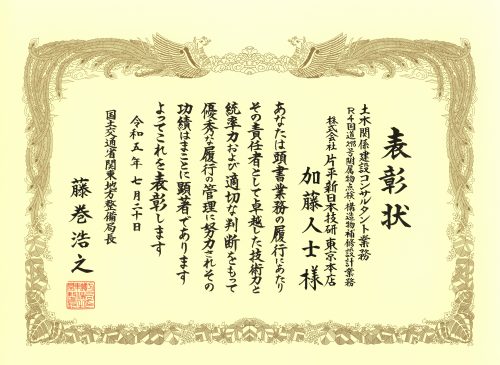 表彰状
土木関係建設コンサルタント業務
R4国道357号附属物点検・構造物補修設計業務
株式会社片平新日本技研 東京本店
加藤人士様
あなたは頭書業務の履行にあたり
その責任者として卓越した技術力と
統率力および適切な判断をもって
優秀な履行の管理に努力されその
功績はまことに顕著であります
よってこれを表彰します
令和五年七月二十日
国土交通省関東地方整備局長
藤巻浩之